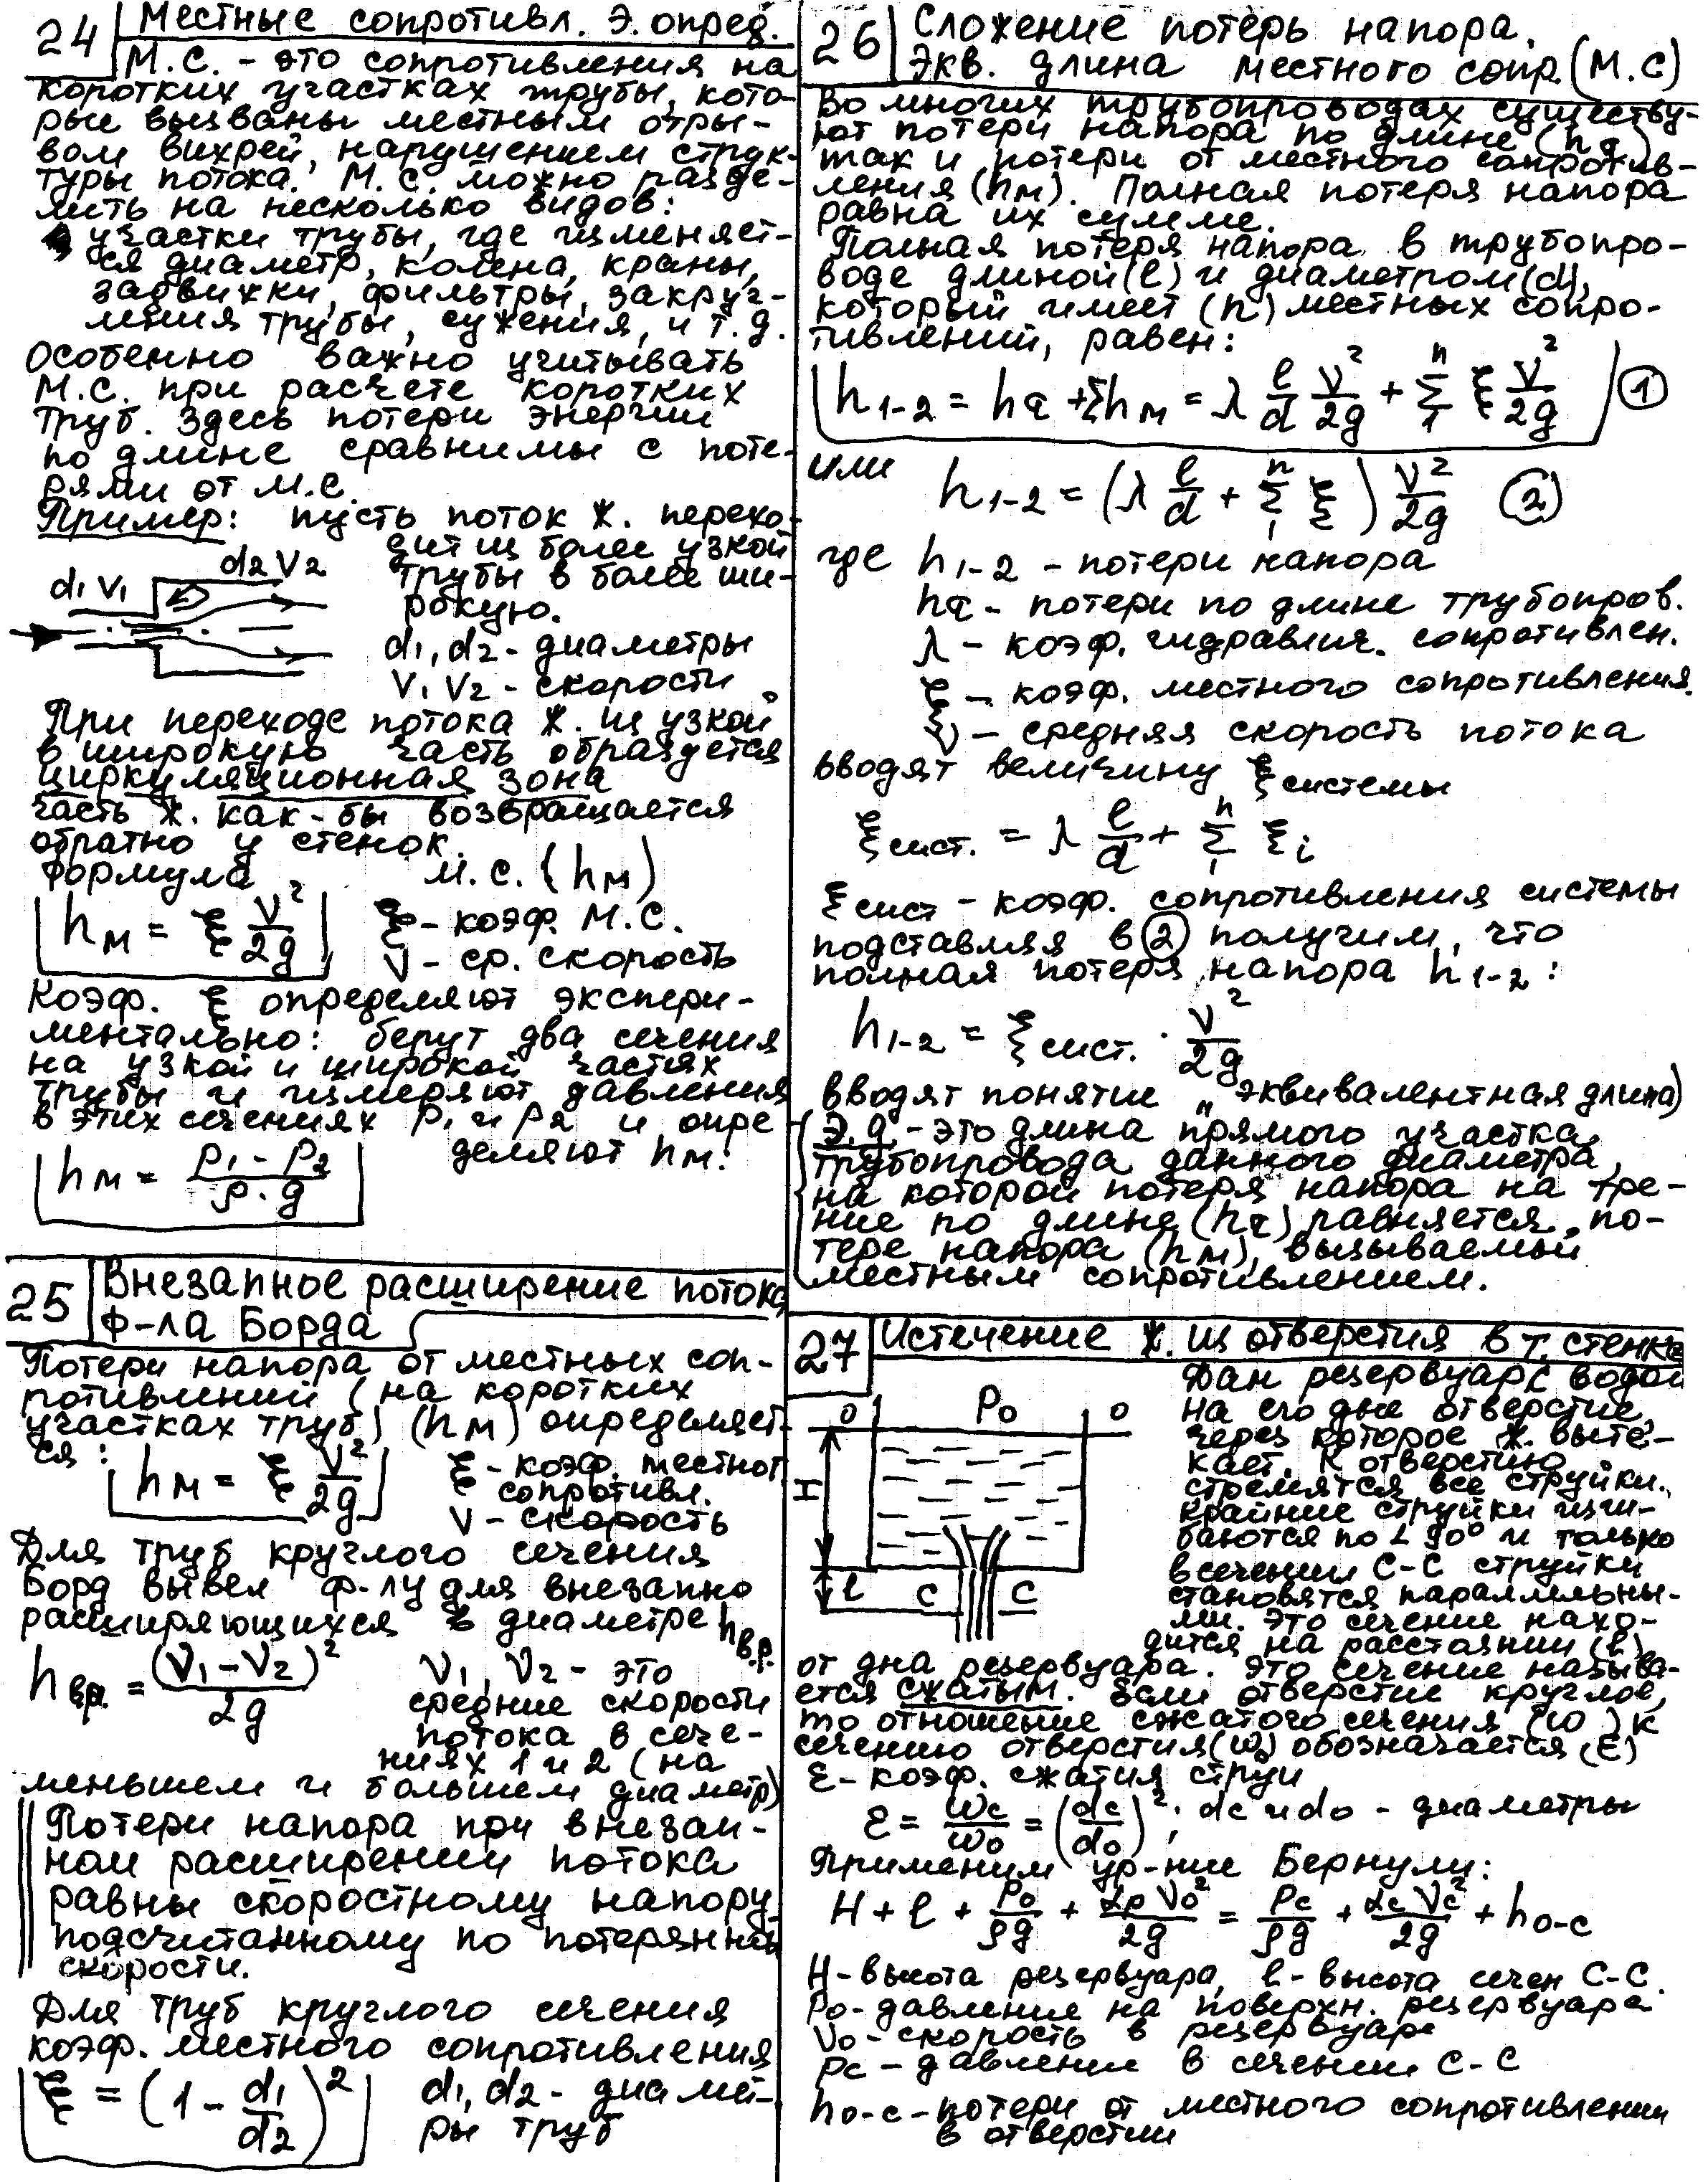 24 Местные сопротивл. Э. опред.
М.С. - это сопротивления на
коротких участках трубы, кото-
рые вызваны местным отры-
вом вихрей, нарушением струк-
туры потока. М.С. можно разде-
лить на несколько видов:
участки трубы, где изменяет-
ся диаметр, колена, краны,
задвижки, фильтры, закруг-
ления трубы, сужения, и т.д.
Особенно важно учитывать
М.С. при расчете коротких
труб. Здесь потери энергии
по длине сравнимы с поте-
рями от М.С.
Пример: пусть поток ж. перехо-
дит из более узкой
трубы в более ши-
рокую.
d1 V1 d2 V2
d1, d2 - диаметры
V1 V2 - скорости
При переходе потока ж. из узкой
в широкую часть образуется
циркуляционная зона
часть ж. как-бы возвращается
обратно у стенок.
Формула М.С. (hм)
hм = ξ V²/2g
ξ - коэф. М.С.
V - ср. скорость
Коэф. ξ определяют экспери-
ментально: берут два сечения
на узкой и широкой частях
трубы и измеряют давления
в этих сечениях P1 и P2 и опре
деляют hм:
hм = P1 - P2 / ρ · g
25 Внезапное расширение потока
Ф-ла Борда
Потери напора от местных соп-
ротивлений (на коротких
участках труб) (hм) определяет-
ся:
hм = ξ V²/2g
ξ - коэф. местног
сопротивл.
V - скорость
Для труб круглого сечения
Борд вывел ф-лу для внезапно
расширяющихся в диаметре hв.р.
hвр. = (V1 - V2)²/2g
V1, V2 - это
средние скорости
потока в сече-
ниях 1 и 2 (на
меньшем и большем диаметр)
Потери напора при внезап-
ном расширении потока
равны скоростному напору,
подсчитанному по потерянной
скорости.
Для труб круглого сечения
коэф. местного сопротивления
ξ = (1 - d1/d2)²
d1, d2 - диамет-
ры труб
26 Сложение потерь напора.
Экв. длина местного сопр. (М.С)
Во многих трубопроводах существу-
ют потери напора по длине (hτ)
так и потери от местного сопротив-
ления (hм). Полная потеря напора
равна их сумме.
Полная потеря напора в трубопро-
воде длиной (ℓ) и диаметром (d),
который имеет (n) местных сопро-
тивлений, равен:
h1-2 = hτ + Σhм = λ ℓ/d V²/2g + Σ1n ξ V²/2g (1)
или h1-2 = (λ ℓ/d + Σ1n ξ) V²/2g (2)
где h1-2 - потери напора
hτ - потери по длине трубопров.
λ - коэф. гидравлич. сопротивлен.
ξ - коэф. местного сопротивления.
V - средняя скорость потока
вводят величину ξ системы
ξ сист. = λ ℓ/d + Σ1n ξi
ξ сист - коэф. сопротивления системы
подставляя в (2) получим, что
полная потеря напора h1-2:
h1-2 = ξ сист. · V²/2g
вводят понятие „эквивалентная длина)
Э.д. - это длина прямого участка
трубопровода данного диаметра,
на которой потеря напора на тре-
ние по длине (hτ) равняется по-
тере напора (hм), вызываемый
местным сопротивлением.
27 Истечение ж. из отверстия в т. стенке
Дан резервуар с водой
на его дне отверстие,
через которое ж. выте-
кает. К отверстию
стремятся все струйки.
крайние струйки изги-
баются по ∠ 90° и только
в сечении С-С струйки
становятся параллельны-
ми. Это сечение нахо-
дится на расстоянии (ℓ)
0 P0 0
H
ℓ C C
от дна резервуара. Это сечение называ-
ется сжатым. Если отверстие круглое,
то отношение сжатого сечения (ω) к
сечению отверстия (ω0) обозначается (ε)
ε - коэф. сжатия струи
ε = ωc/ω0 = (dc/d0)²; dc и d0 - диаметры
Применим ур-ние Бернули:
H + ℓ + P0/ρg + α0 V0²/2g = Pc/ρg + αc Vc²/2g + h0-c
H - высота резервуара, ℓ - высота сечен С-С.
P0 - давление на поверхн. резервуара
V0 - скорость в резервуаре
Pc - давление в сечении С-С
h0-c - потери от местного сопротивлении
в отверстии